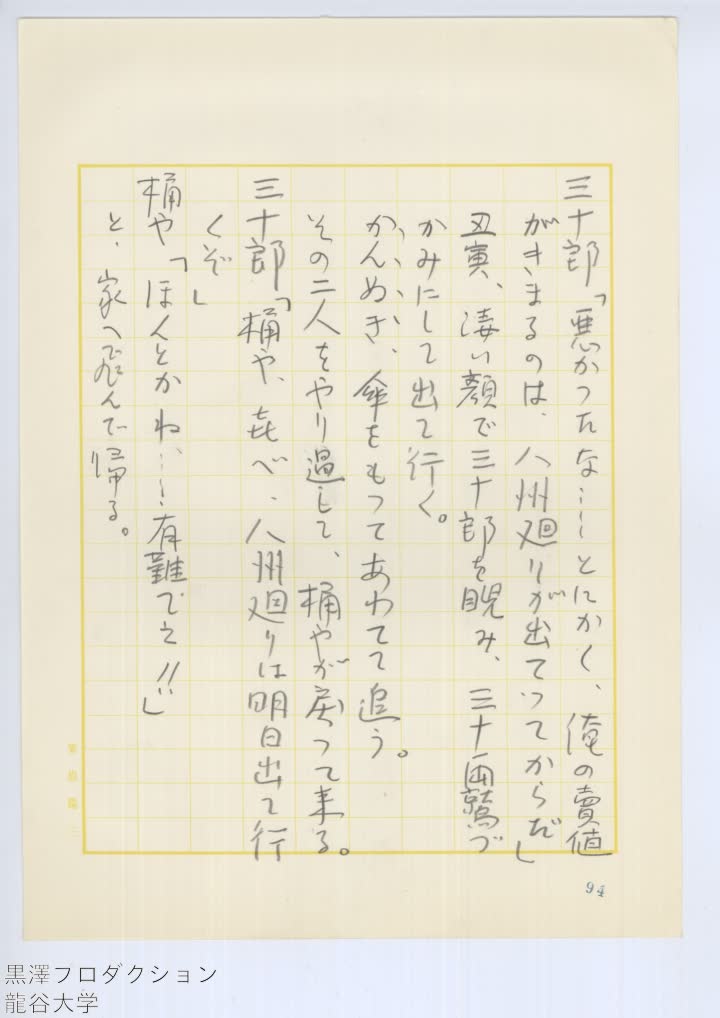 三十郎「悪かつたな……とにかく、俺の賣値
がきまるのは、八州廻りが出ていつてからだ」
丑寅、凄い顔で三十郎を睨み、三十両鷲づ
かみにして出て行く。
かんぬき、傘をもつてあわてて追う。
その二人をやり過して、桶やが戻つて来る。
三十郎「桶や、㐂べ、八州廻りは明日出て行
くぞ」
桶や「ほんとかね……有難でえ!!」
と、家へ飛んで帰る。
94
黒澤フロダクション
龍谷大学